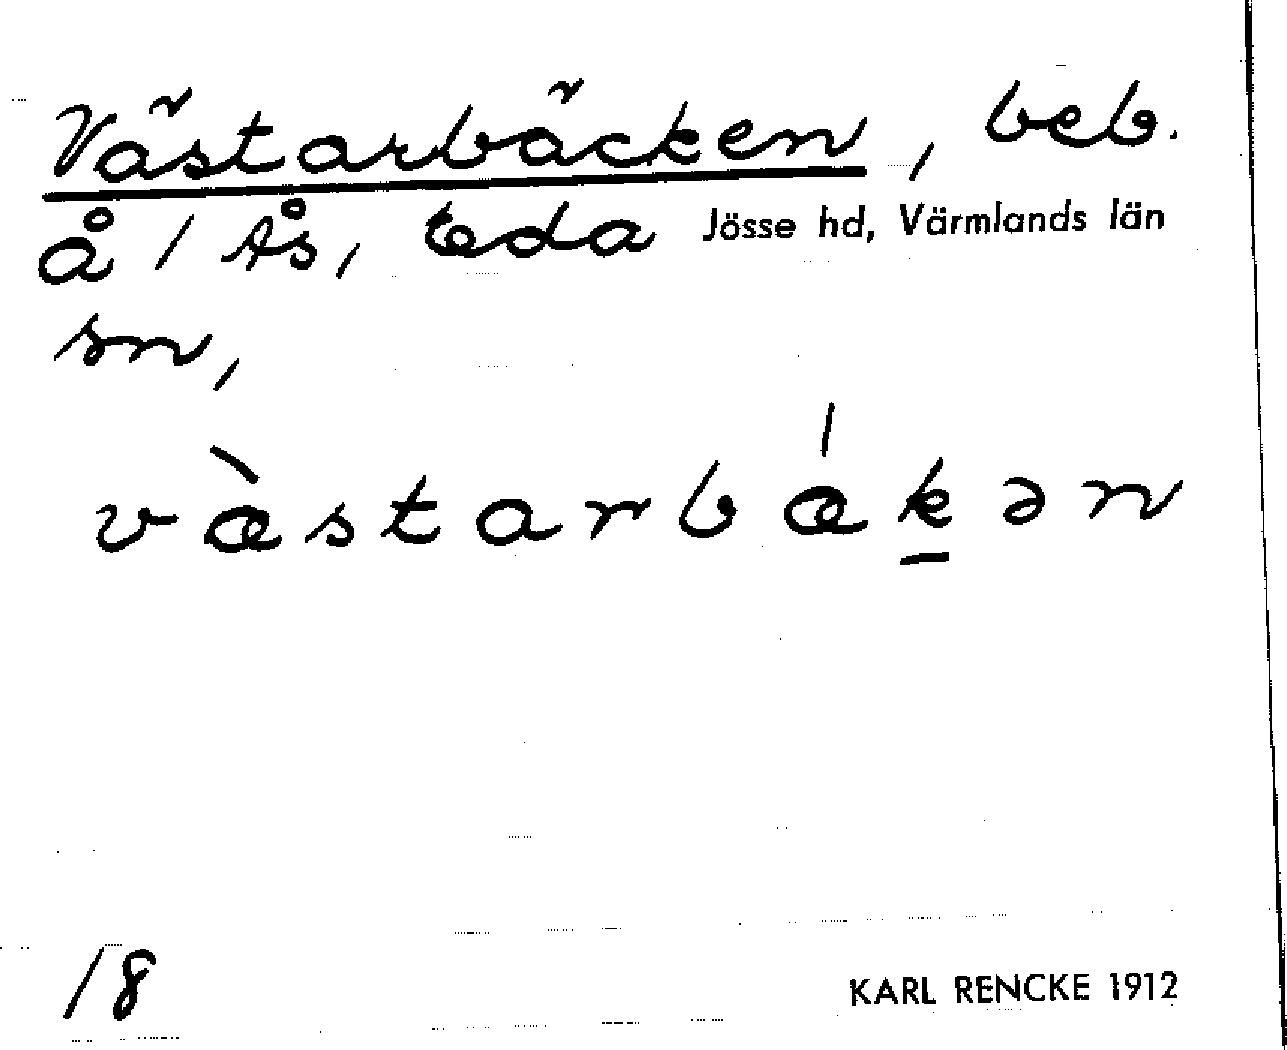 Västarbäcken, beb.
å 1 Ås, Eda Jösse hd, Värmlands län
sn,
væ̀starbǽk̲ən
18
KARL RENCKE 1912